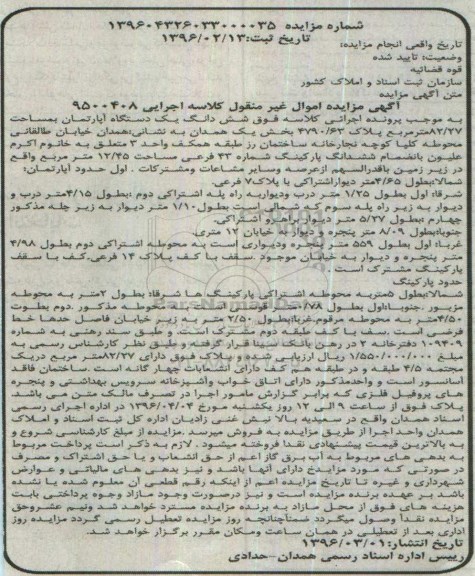 شماره مزایده ۱۳۹۶۰۴۳۲۶۰۳۳۰۰۰۰۳۵
تاریخ ثبت:۱۳۹۶/۰۲/۱۳
تاریخ واقعی انجام مزایده:
وضعیت: تایید شده
قوه قضائیه
سازمان ثبت اسناد و املاک کشور
متن آگهی مزایده
آگهی مزایده اموال غیر منقول کلاسه اجرایی ۹۵۰۰۴۰۸
به موجب پرونده اجرائی کلاسه فوق شش دانگ یک دستگاه آپارتمان بمساحت
۸۲/۲۷مترمربع پلاک ۴۷۹۰/۶۳ بخش یک همدان به نشانی:همدان خیابان طالقانی
محوطه کلپا کوچه نجارخانه ساختمان رز طبقه همکف واحد ۳ متعلق به خانم اکرم
علیون بانضمام ششدانگ پارکینگ شماره ۳۳ فرعی مساحت ۱۲/۴۵ متر مربع واقع
در زیر زمین باقدرالسهم ازعرصه وسایر مشاعات ومشترکات . اول حدود آپارتمان:
شمالا:بطول ۴/۶۵متر دیواراشتراکی با پلاک۷ فرعی.
شرقا: اول بطول ۱/۲۵ متر درب ودیواربه راه پله اشتراکی دوم :بطول ۴/۱۵متر درب و
دیوار به زیر راه پله سوم که شمالی است بطول ۱/۱۰ متر دیوار به زیر پله مذکور
چهارم :بطول ۵/۲۷ متر دیوار براهرو اشتراکی.
جنوبا:بطول ۸/۰۹ متر پنجره و دیوار به خیابان ۱۲ متری.
غربا: اول بطول ۵۵۹ متر پنجره ودیواری است به محوطه اشتراکی دوم بطول ۴/۹۸
متر پنجره و دیوار به خیابان موجود .سقف با کف پلاک ۱۴ فرعی.کف با سقف
پارکینگ مشترک است .
حدود پارکینگ
شمالا:بطول ۵متربه محوطه اشتراکی پارکینگ ها شرقا: بطول ۲متر به محوطه
مزبور .جنوبا:اول بطول ۰/۷۸متر قوسی است به محوطه مذکور .دوم بطول
۴/۵۰متر به محوطه مرقوم.غربابطول ۲/۵۰ متر به زیر خیابان فاصل حدها خط
فرضی است .سقف با کف طبقه دوم مشترک است. و طبق سند رهنی به شماره
۱۰۹۴۰۹ دفترخانه ۲ در رهن بانک سینا قرار گرفته و طبق نظر کارشناس رسمی به
مبلغ ۱/۵۵۰/۰۰۰/۰۰۰ ریال ارزیابی شده . پلاک فوق دارای ۸۲/۲۷متر مربع دریک
مجتمه ۴/۵ طبقه و در طبقه هم کف دارای انشعابات چهار گانه است .ساختمان فاقد
آسانسور است و واحدمذکور دارای اتاق خواب وآشپزخانه سرویس بهداشتی و پنجره
های پروفیل فلزی که برابر گزارش مامور اجرا در تصرف مالک متن می باشد.
پلاک فوق از ساعت ۹ الی ۱۲ روز یکشنبه مورخ ۱۳۹۶/۰۴/۰۴ در اداره اجرای رسمی
اسناد همدان واقع در سعیدیه بالا نبش غنی زادیان اداره کل ثبت اسناد و املاک
همدان واحد اجرا از طریق مزایده به فروش میرسد .مزایده از مبلغ کارشناسی شروع و
به بالاترین قیمت پیشنهادی نقدا فروخته میشود . لازم به ذکر است پرداخت مربوط
به بدهی های مربوط به آب .برق گاز اعم از حق انشعاب و یا حق اشتراک و مصرف
در صورتی که مورد مزایده دارای آنها باشد و نیز بدهی های مالیاتی و عوارض
شهرداری و غیره تا تاریخ مزایده اعم از اینکه رقم قطعی آن معلوم شده یا نشده
باشد بر عهده برنده مزایده است و نیز درصورت وجود مازاد وجوه پرداختی بابت
هزینه های فوق از محل مازاد به برنده مزایده مسترد خواهد شد ونیم عشروحق
مزایده نقدا وصول میگردد ضمنآچنانچه روز مزایده تعطیل رسمی گردد مزایده روز
اداری بعد از تعطیلی در همان ساعت ومکان مقرر برگزار خواهد شد.
تاریخ انتشار:۱۳۹۶/۰۳/۰۱
رییس اداره اسناد رسمی همدان-حدادی